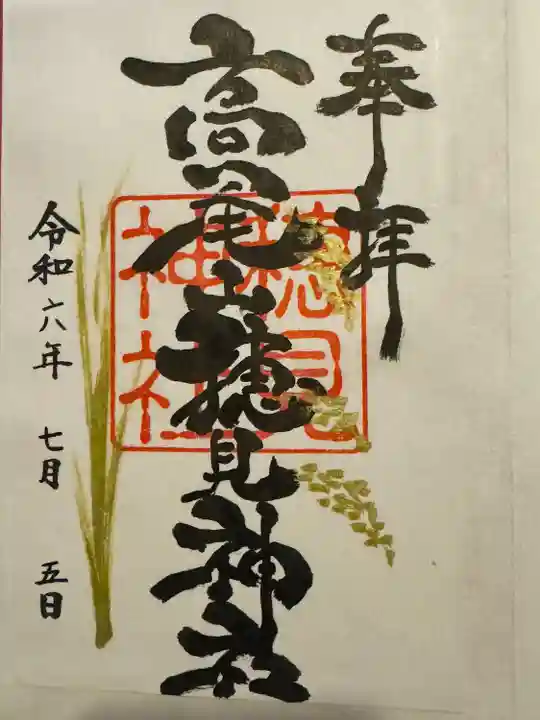 奉拝
高尾山穂見神社
穂見
神社
令和六年 七月 五日